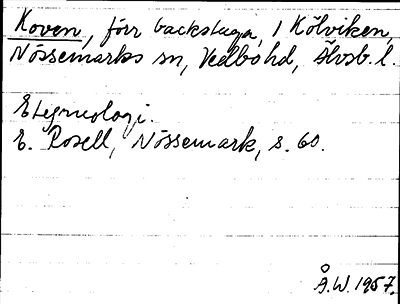 Koven, förr backstuga, i Kölviken,
Nössemarks sn, Vedbo hd, Älvsb. l.
Etymologi.
E. Rosell, Nössemark, s. 60.
Å.W. 1957.